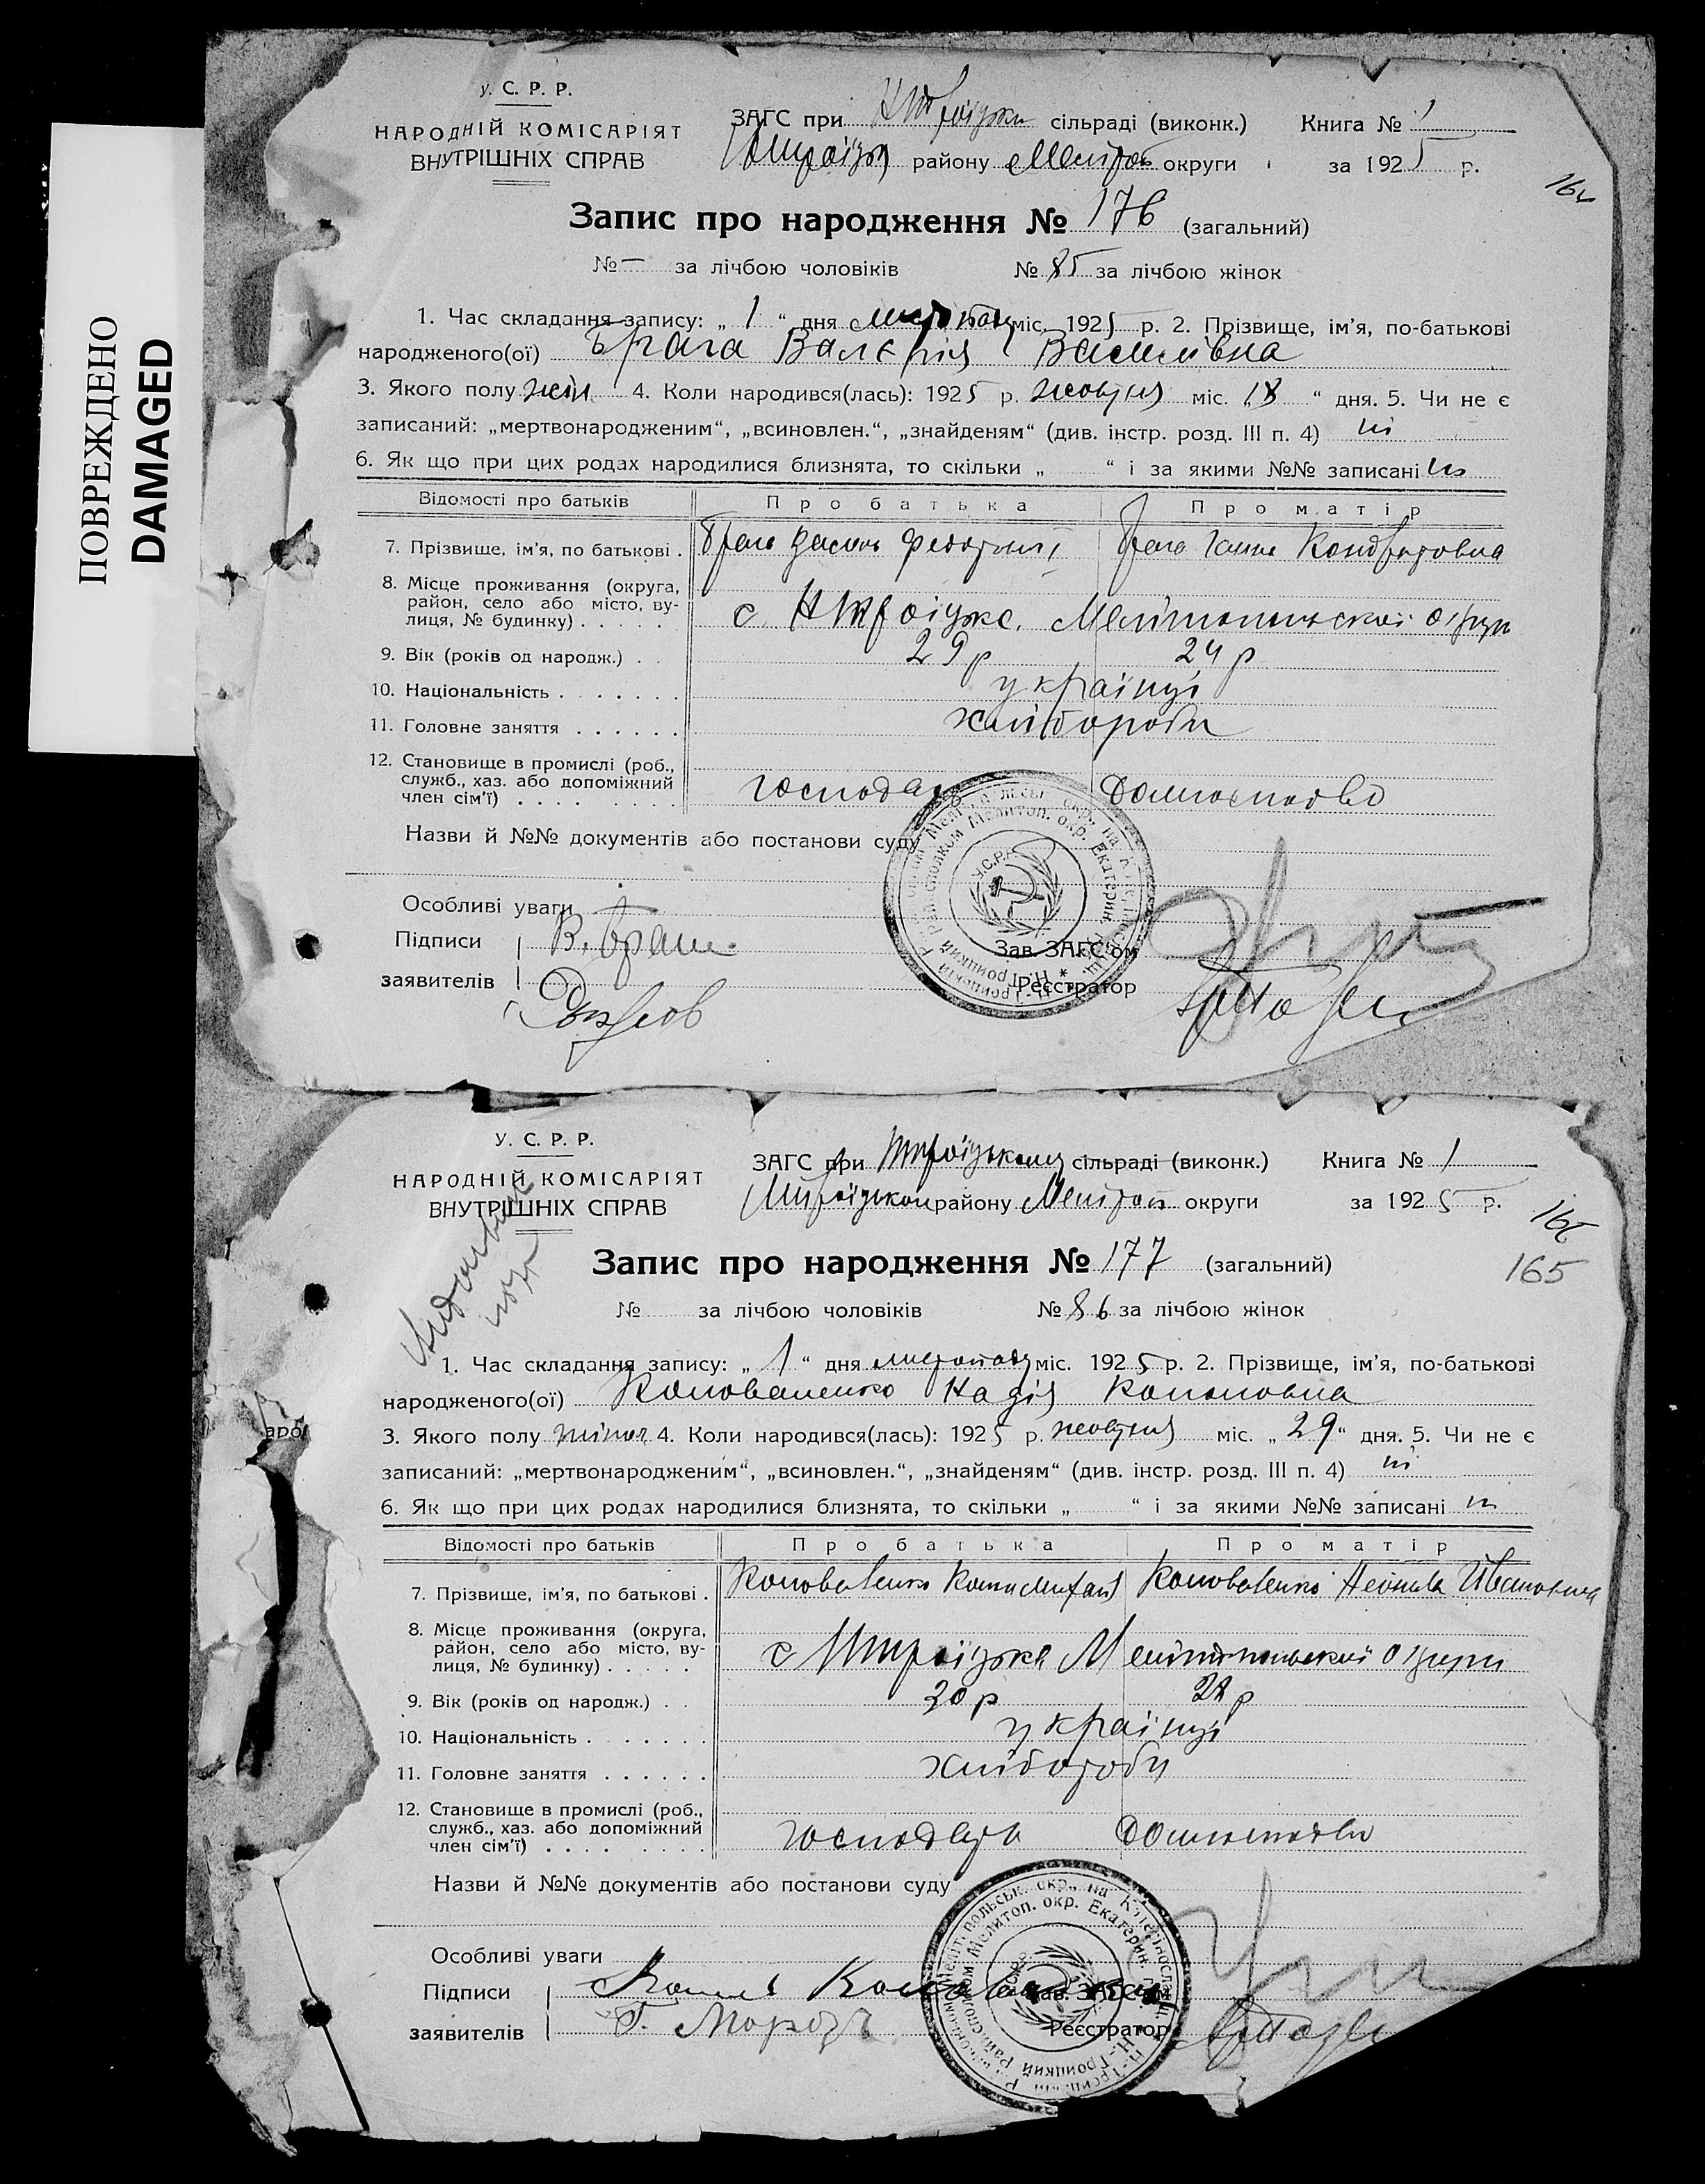 ПОВРЕЖДЕНО
DAMAGED
У. С. Р. Р.
НАРОДНІЙ КОМІСАРІЯТ
ВНУТРІШНІХ СПРАВ
ЗАГС при сільраді (виконк.) Книга № 1
району округи за 1925 р.
Запис про народження № 176 (загальний)
№ — за лічбою чоловіків № 85 за лічбою жінок
1. Час складання запису: „ 1 “ дня листопаду міс. 1925 р. 2. Прізвище, ім'я, по-батькові
народженого(ої) Брага Валєрія Василівна
3. Якого полу жін. 4. Коли народився(лась): 1925 р. жовтня міс. „18 “ дня. 5. Чи не є
записаний: „мертвонародженим“, „всиновлен.“, „знайденям“ (див. інстр. розд. III п. 4) ні
6. Як що при цих родах народилися близнята, то скільки „ “ і за якими №№ записані ні
Відомості про батьків Про батька Про матір
7. Прізвище, ім'я, по батькові . Брага Василь Федотович Брага Ганна Кондратовна
8. Місце проживання (округа,
район, село або місто, ву-
лиця, № будинку) . . . . . с. НТроїцке. Мелітопольської округи
9. Вік (років од народж.) . . 29 р 24 р
10. Національність . . . . . . . українці
11. Головне заняття . . . . . . хлібороби
12. Становище в промислі (роб.,
служб., хаз. або допоміжний
член сім'ї) . . . . . . . . господарь домогосподарка
Назви й №№ документів або постанови суду
Особливі уваги
Підписи В. Брага.
заявителів
Зав. ЗАГС'ом
Реєстратор
У. С. Р. Р.
НАРОДНІЙ КОМІСАРІЯТ
ВНУТРІШНІХ СПРАВ
ЗАГС при Нтроїцькому сільраді (виконк.) Книга № 1
Нтроїцького району Мелітоп. округи за 1925 р.
165
Запис про народження № 177 (загальний)
№ за лічбою чоловіків № 86 за лічбою жінок
1. Час складання запису: „ 1 “ дня листопаду міс. 1925 р. 2. Прізвище, ім'я, по-батькові
народженого(ої) Коноваленко Надія Кononовна
3. Якого полу жіноч. 4. Коли народився(лась): 1925 р. жовтня міс. „ 29 “ дня. 5. Чи не є
записаний: „мертвонародженим“, „всиновлен.“, „знайденям“ (див. інстр. розд. III п. 4) ні
6. Як що при цих родах народилися близнята, то скільки „ “ і за якими №№ записані ні
Відомості про батьків Про батька Про матір
7. Прізвище, ім'я, по батькові . Коноваленко Коноваленко Івановна
8. Місце проживання (округа,
район, село або місто, ву-
лиця, № будинку) . . . . . с Нтроїцке Мелітопольської округи
9. Вік (років од народж.) . . р р
10. Національність . . . . . . . українці
11. Головне заняття . . . . . . хлібороби
12. Становище в промислі (роб.,
служб., хаз. або допоміжний
член сім'ї) . . . . . . . . господарь
Назви й №№ документів або постанови суду
Особливі уваги
Підписи
заявителів Г. Морозъ
Зав. ЗАГС'ом
Реєстратор